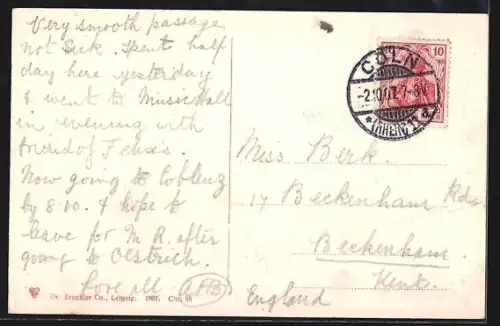 Very smooth passage
not sick. Spent half
day here yesterday
& went to Music Hall
in evening with
friend of
Now going to Coblenz
by 8-10. & hope to
leave for M R. after
going to Oestrich.
Love all AHB
Dr. Trenkler Co., Leipzig. 1907. Cön. 55
CÖLN
-2.10.07. 7-8V.
* (RHEIN) 1 d.
10
Miss Berk.
17 Beckenham Rd.
Beckenham.
Kent.
England